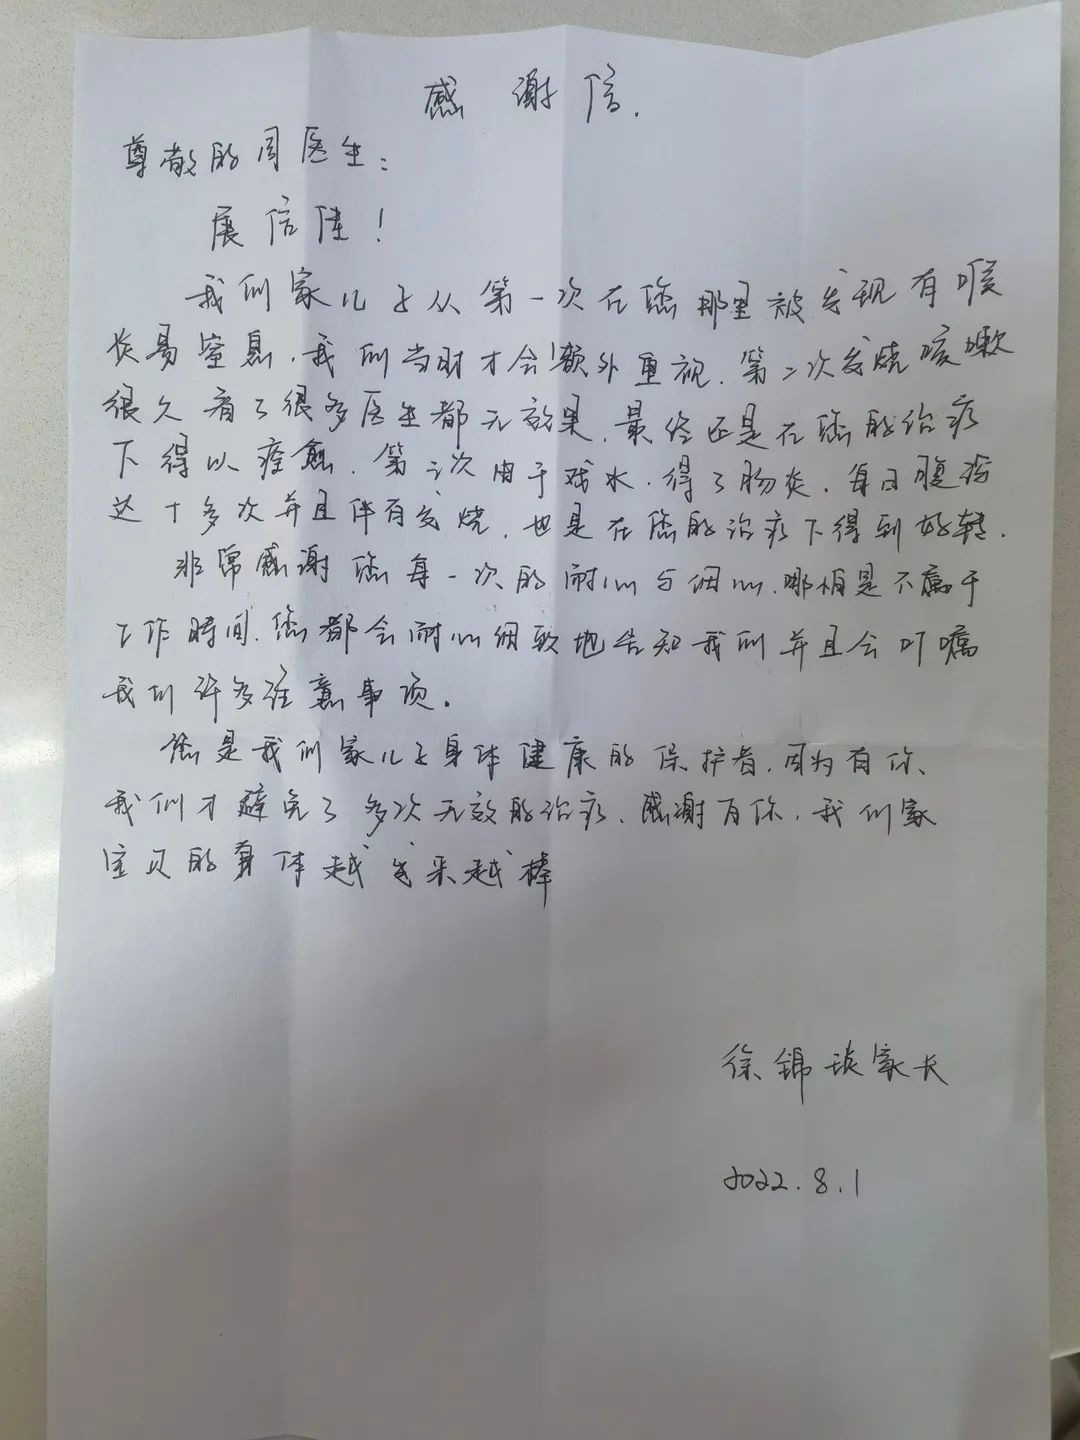 感谢信.
尊敬的周医生:
展信佳!
我们家儿子从第一次在您那里被发现有喉
炎易窒息.我们当时才会额外重视.第二次发烧咳嗽
很久看了很多医生都无效果.最终还是在您的治疗
下得以痊愈.第三次由于戏水.得了肠炎.每日腹泻
达十多次并且伴有发烧.也是在您的治疗下得到好转.
非常感谢您每一次的耐心与细心.哪怕是不属于
工作时间.您都会耐心细致地告知我们并且会叮嘱
我们许多注意事项.
您是我们家儿子身体健康的保护者.因为有你、
我们才避免了多次无效的治疗.感谢有你.我们家
宝贝的身体越来越棒
徐锦 家长
2022.8.1